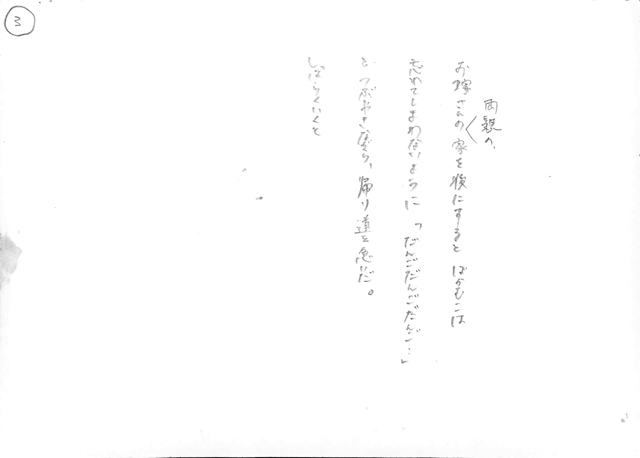 3
お嫁さんの家を後にするとばかむこは
両親の、
忘れてしまわないように「だんごだんごだんご…」
とつぶやき度ら、帰り道を急いだ。
しばらくいくと